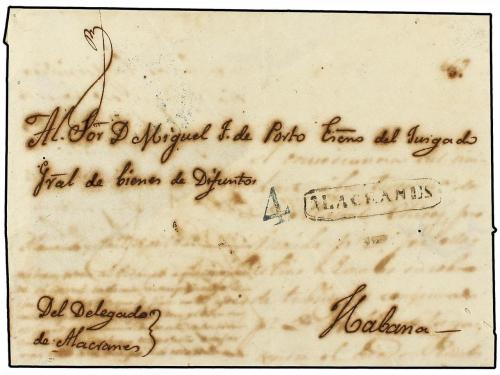 Al Sor D Miguel J. de Porto Esno del Juzgado
Gral de bienes de Difuntos
4 ALACRANES
Del Delegado
de Alacranes
Habana